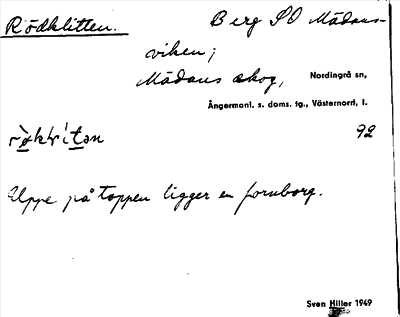 Rödklitten. Berg SO Mädans-
viken;
Mädans skog, Nordingrå sn,
Ångermanl. s. doms. tg., Västernorrl. l.
92
Uppe på toppen ligger en fornborg.
Sven Hiller 1949